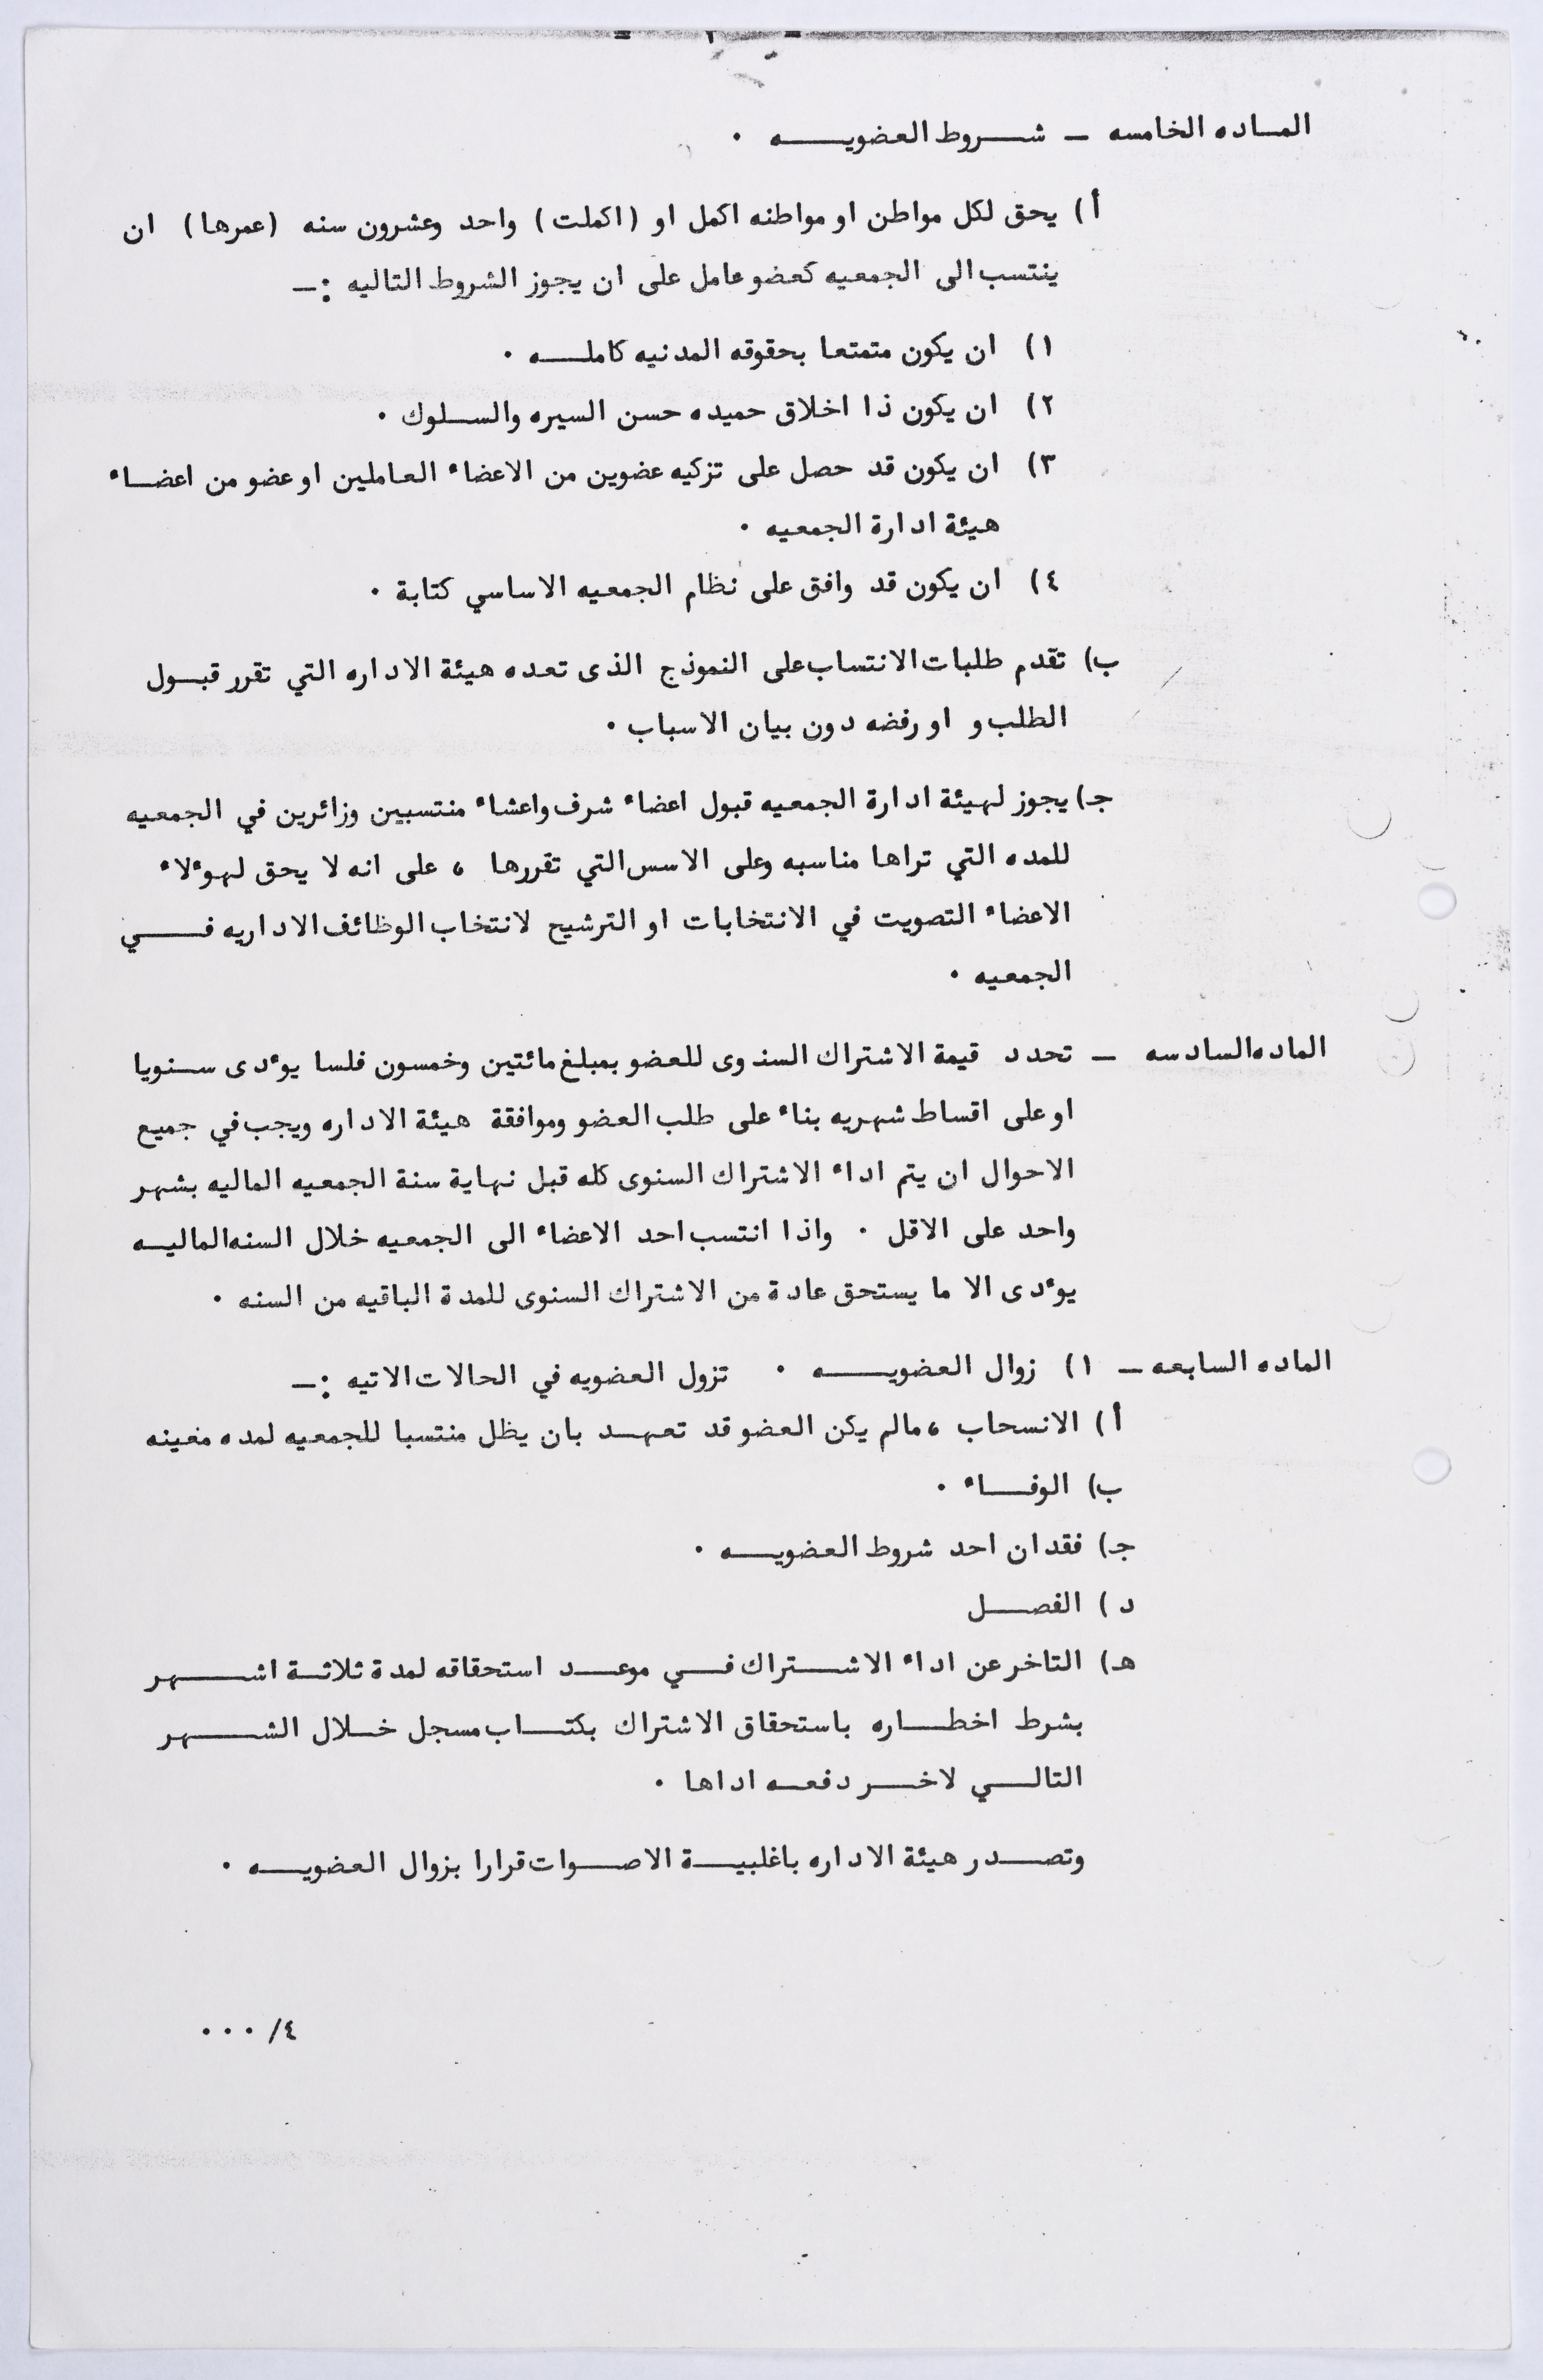 الماده الخامسه ــ شروط العضويه ٠
أ) يحق لكل مواطن او مواطنه اكمل او (اكملت) واحد وعشرون سنه (عمرها) ان
ينتسب الى الجمعيه كعضو عامل على ان يجوز الشروط التاليه :ــ
١) ان يكون متمتعا بحقوقه المدنيه كامله ٠
٢) ان يكون ذا اخلاق حميده حسن السيره والسلوك ٠
٣) ان يكون قد حصل على تزكيه عضوين من الاعضاء العاملين او عضو من اعضاء
هيئة ادارة الجمعيه ٠
٤) ان يكون قد وافق على نظام الجمعيه الاساسي كتابة ٠
ب) تقدم طلبات الانتساب على النموذج الذى تعده هيئة الاداره التي تقرر قبول
الطلب و او رفضه دون بيان الاسباب ٠
جـ) يجوز لهيئة ادارة الجمعيه قبول اعضاء شرف واعشاء منتسبين وزائرين في الجمعيه
للمده التي تراها مناسبه وعلى الاسس التي تقررها ، على انه لا يحق لهوءلاء
الاعضاء التصويت في الانتخابات او الترشيح لانتخاب الوظائف الاداريه في
الجمعيه ٠
الماده السادسه ــ تحدد قيمة الاشتراك السنوى للعضو بمبلغ مائتين وخمسون فلسا يوءدى سنويا
او على اقساط شهريه بناء على طلب العضو وموافقة هيئة الاداره ويجب في جميع
الاحوال ان يتم اداء الاشتراك السنوى كله قبل نهاية سنة الجمعيه الماليه بشهر
واحد على الاقل ٠ واذا انتسب احد الاعضاء الى الجمعيه خلال السنه الماليه
يوءدى الا ما يستحق عادة من الاشتراك السنوى للمدة الباقيه من السنه ٠
الماده السابعه ــ ١) زوال العضويه ٠ تزول العضويه في الحالات الاتيه :ــ
أ) الانسحاب ، مالم يكن العضو قد تعهد بان يظل منتسبا للجمعيه لمده معينه
ب) الوفاء ٠
جـ) فقدان احد شروط العضويه ٠
د) الفصل
هـ) التاخر عن اداء الاشتراك في موعد استحقاقه لمدة ثلاثة اشهر
بشرط اخطاره باستحقاق الاشتراك بكتاب مسجل خلال الشهر
التالي لاخر دفعه اداها ٠
وتصدر هيئة الاداره باغلبية الاصوات قرارا بزوال العضويه ٠
٤/ ٠٠٠